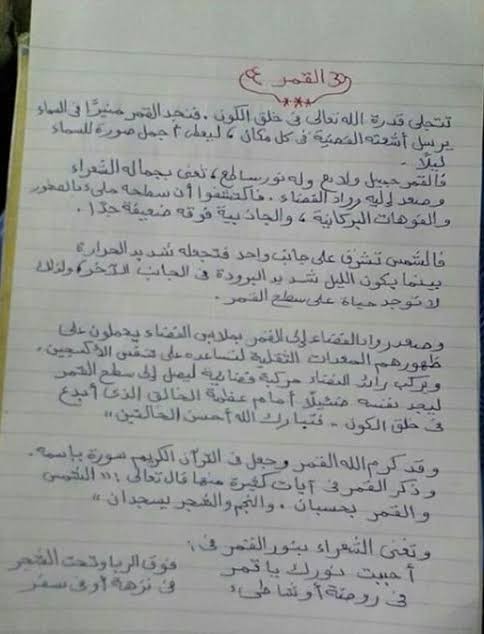 القمر
تتجلى قدرة الله تعالى فى خلق الكون. فنجد القمر منيرًا فى السماء
يرسل أشعته الفضية فى كل مكان، ليعطى أجمل صورة للسماء
ليلًا.
فالقمر جميل ولامع وله نور ساطع، تغنى بجماله الشعراء
وصعد إليه رواد الفضاء. فاكتشفوا أن سطحه ملىء بالصخور
والفوهات البركانية، والجاذبية فوقه ضعيفة جدًا.
فالشمس تشرق على جانب واحد فتجعله شديد الحرارة
بينما يكون الليل شديد البرودة فى الجانب الآخر، ولذلك
لا توجد حياة على سطح القمر.
وصعد رواد الفضاء إلى القمر بملابس الفضاء يحملون على
ظهورهم المعدات الثقيلة لتساعده على تنفس الأكسجين.
ويركب رائد الفضاء مركبة فضائية ليصل إلى سطح القمر
ليجد نفسه ضئيلًا أمام عظمة الخالق الذى أبدع
فى خلق الكون - فتبارك الله أحسن الخالقين"
وقد كرم الله القمر وجعل فى القرآن الكريم سورة بإسمه.
وذكر القمر فى آيات كثيرة منها قال تعالى: "الشمس
والقمر بحسبان. والنجم والشجر يسجدان"
وتغنى الشعراء بنور القمر فى:
أحببت نورك يا قمر فوق الربا وتحت الشجر
فى روضة أو شاطىء فى نزهة أو فى سفر